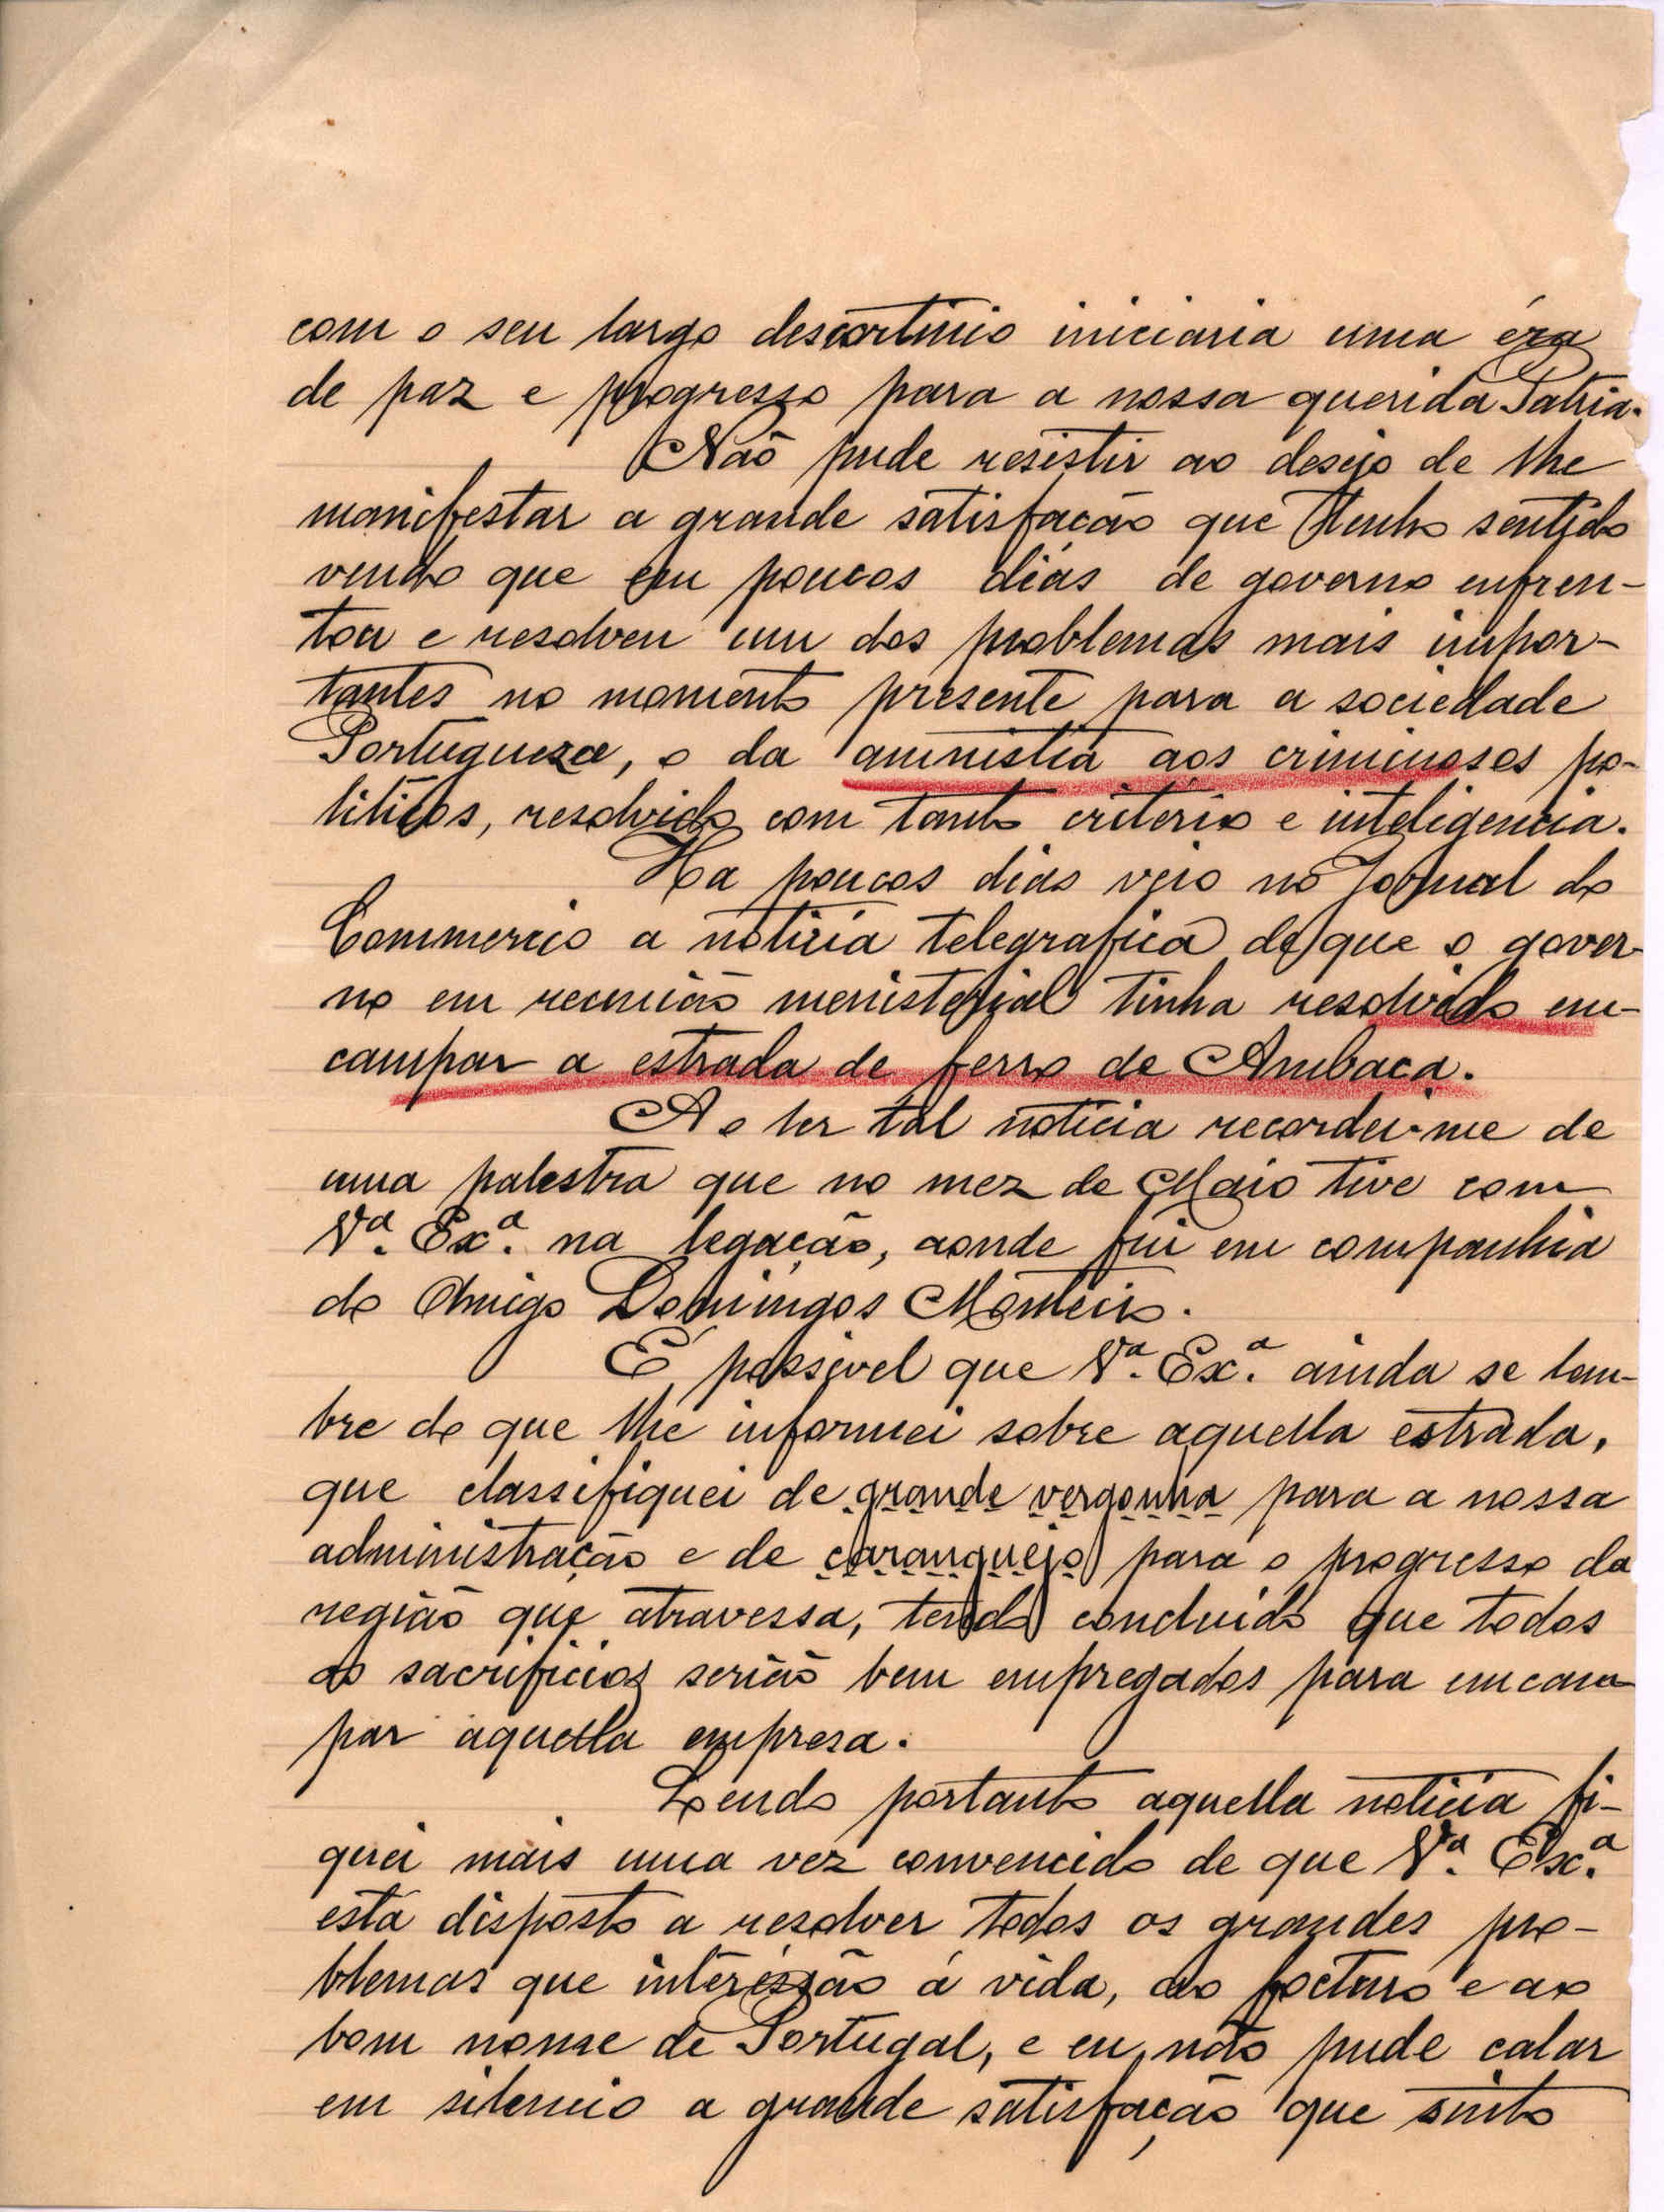 com o seu largo descortinio iniciaria uma éra
de paz e progresso para a nossa querida Patria.
Não pude resistir ao desejo de lhe
manifestar a grande satisfação que tenho sentido
vendo que em poucos dias de governo enfren-
tou e resolveu um dos problemas mais impor-
tantes no momento presente para a sociedade
Portugueza, o da amnistia aos criminosos po-
liticos, resolvido com tanto criterio e inteligencia.
Ha poucos dias veio no Jornal do
Commercio a noticia telegrafica de que o gover-
no em reunião menisterial tinha resolvido em-
campar a estrada de ferro de Ambaca.
Ao ler tal noticia recordei-me de
uma palestra que no mez de Maio tive com
Vª. Exª. na legação, aonde fui em companhia
do Amigo Domingos Monteiro.
É possivel que Vª. Exª. ainda se lem-
bre do que lhe informei sobre aquella estrada,
que classifiquei de grande vergonha para a nossa
administração e de caranguejo para o progresso da
região que atravessa, tendo concluido que todos
os sacrificios serião bem empregados para emcam-
par aquella empresa.
Lendo portanto aquella noticia fi-
quei mais uma vez convencido de que Vª. Exª.
está disposto a resolver todos os grandes pro-
blemas que interessão á vida, ao focturo e ao
bom nome de Portugal, e eu não pude calar
em silencio a grande satisfação que sinto